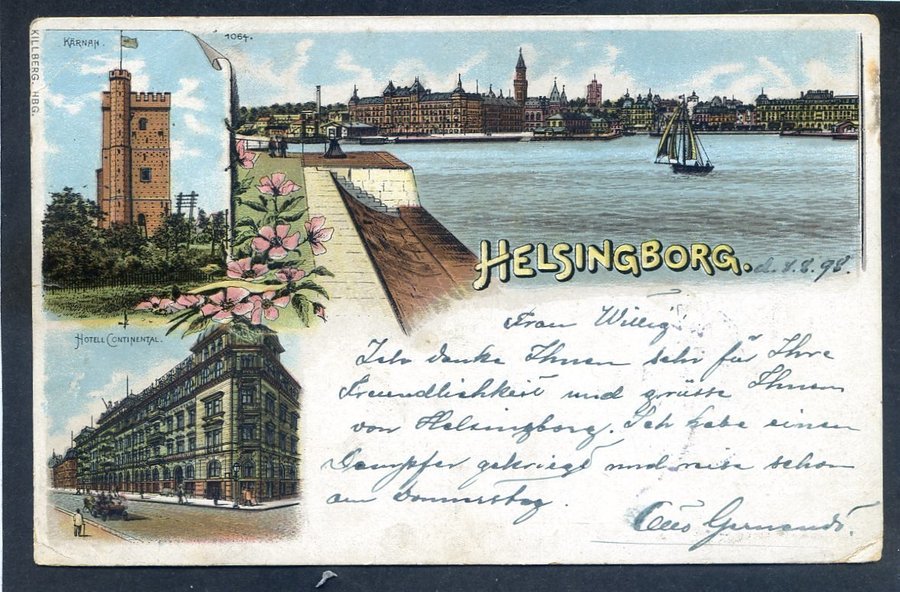 KÄRNAN.
1064.
KILLBERG. HBG.
HELSINGBORG.
d. 8.8.98.
HOTELL CONTINENTAL.
Frau Willig
Ich danke Ihnen sehr für Ihre
Freundlichkeit und grüsse Ihnen
von Helsingborg. Ich habe einen
Dampfer gekriegt und reise schon
am Donnerstag.